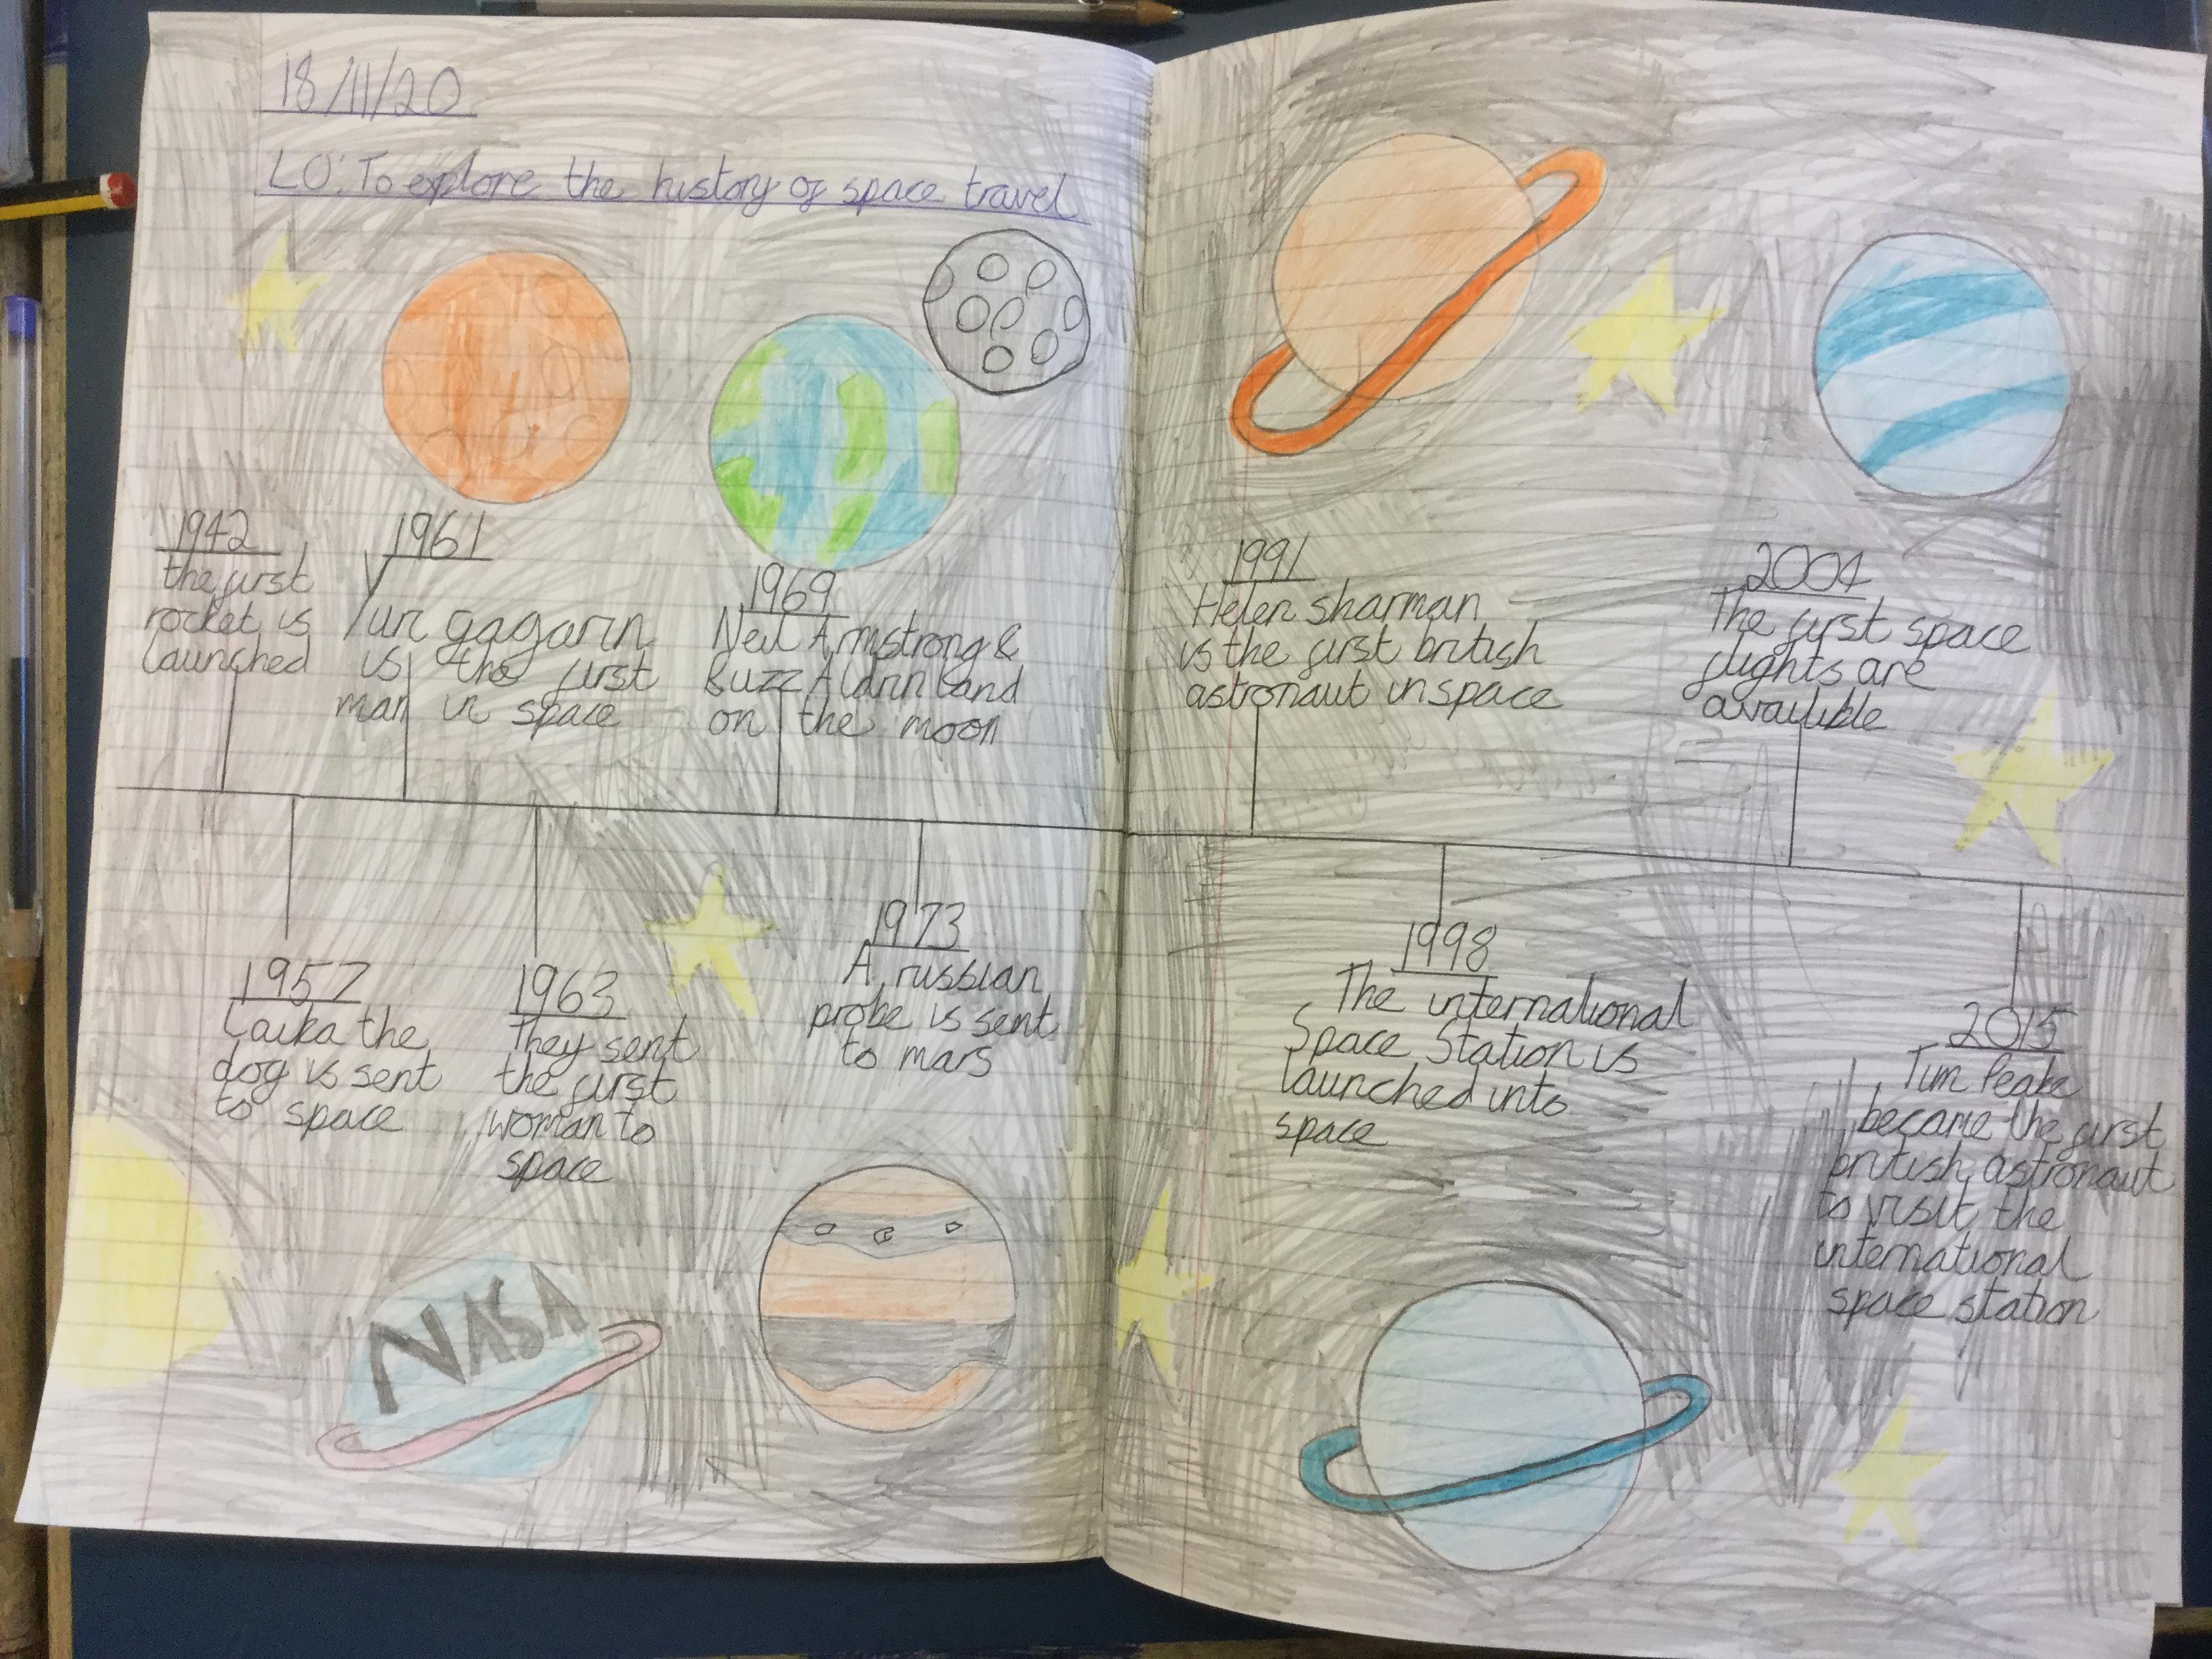 18/11/20
LO: To explore the history of space travel
1942
the first
rocket is
launched
1961
Yuri gagarin
is the first
man in space
1969
Neil Armstrong &
Buzz Aldrin land
on the moon
1957
Laika the
dog is sent
to space
1963
They sent
the first
woman to
space
1973
A russian
probe is sent
to mars
NASA
1991
Helen Sharman
is the first british
astronaut in space
2004
The first space
flights are
availible
1998
The international
Space Station is
launched into
space
2015
Tim Peake
became the first
british astronaut
to visit the
international
space station